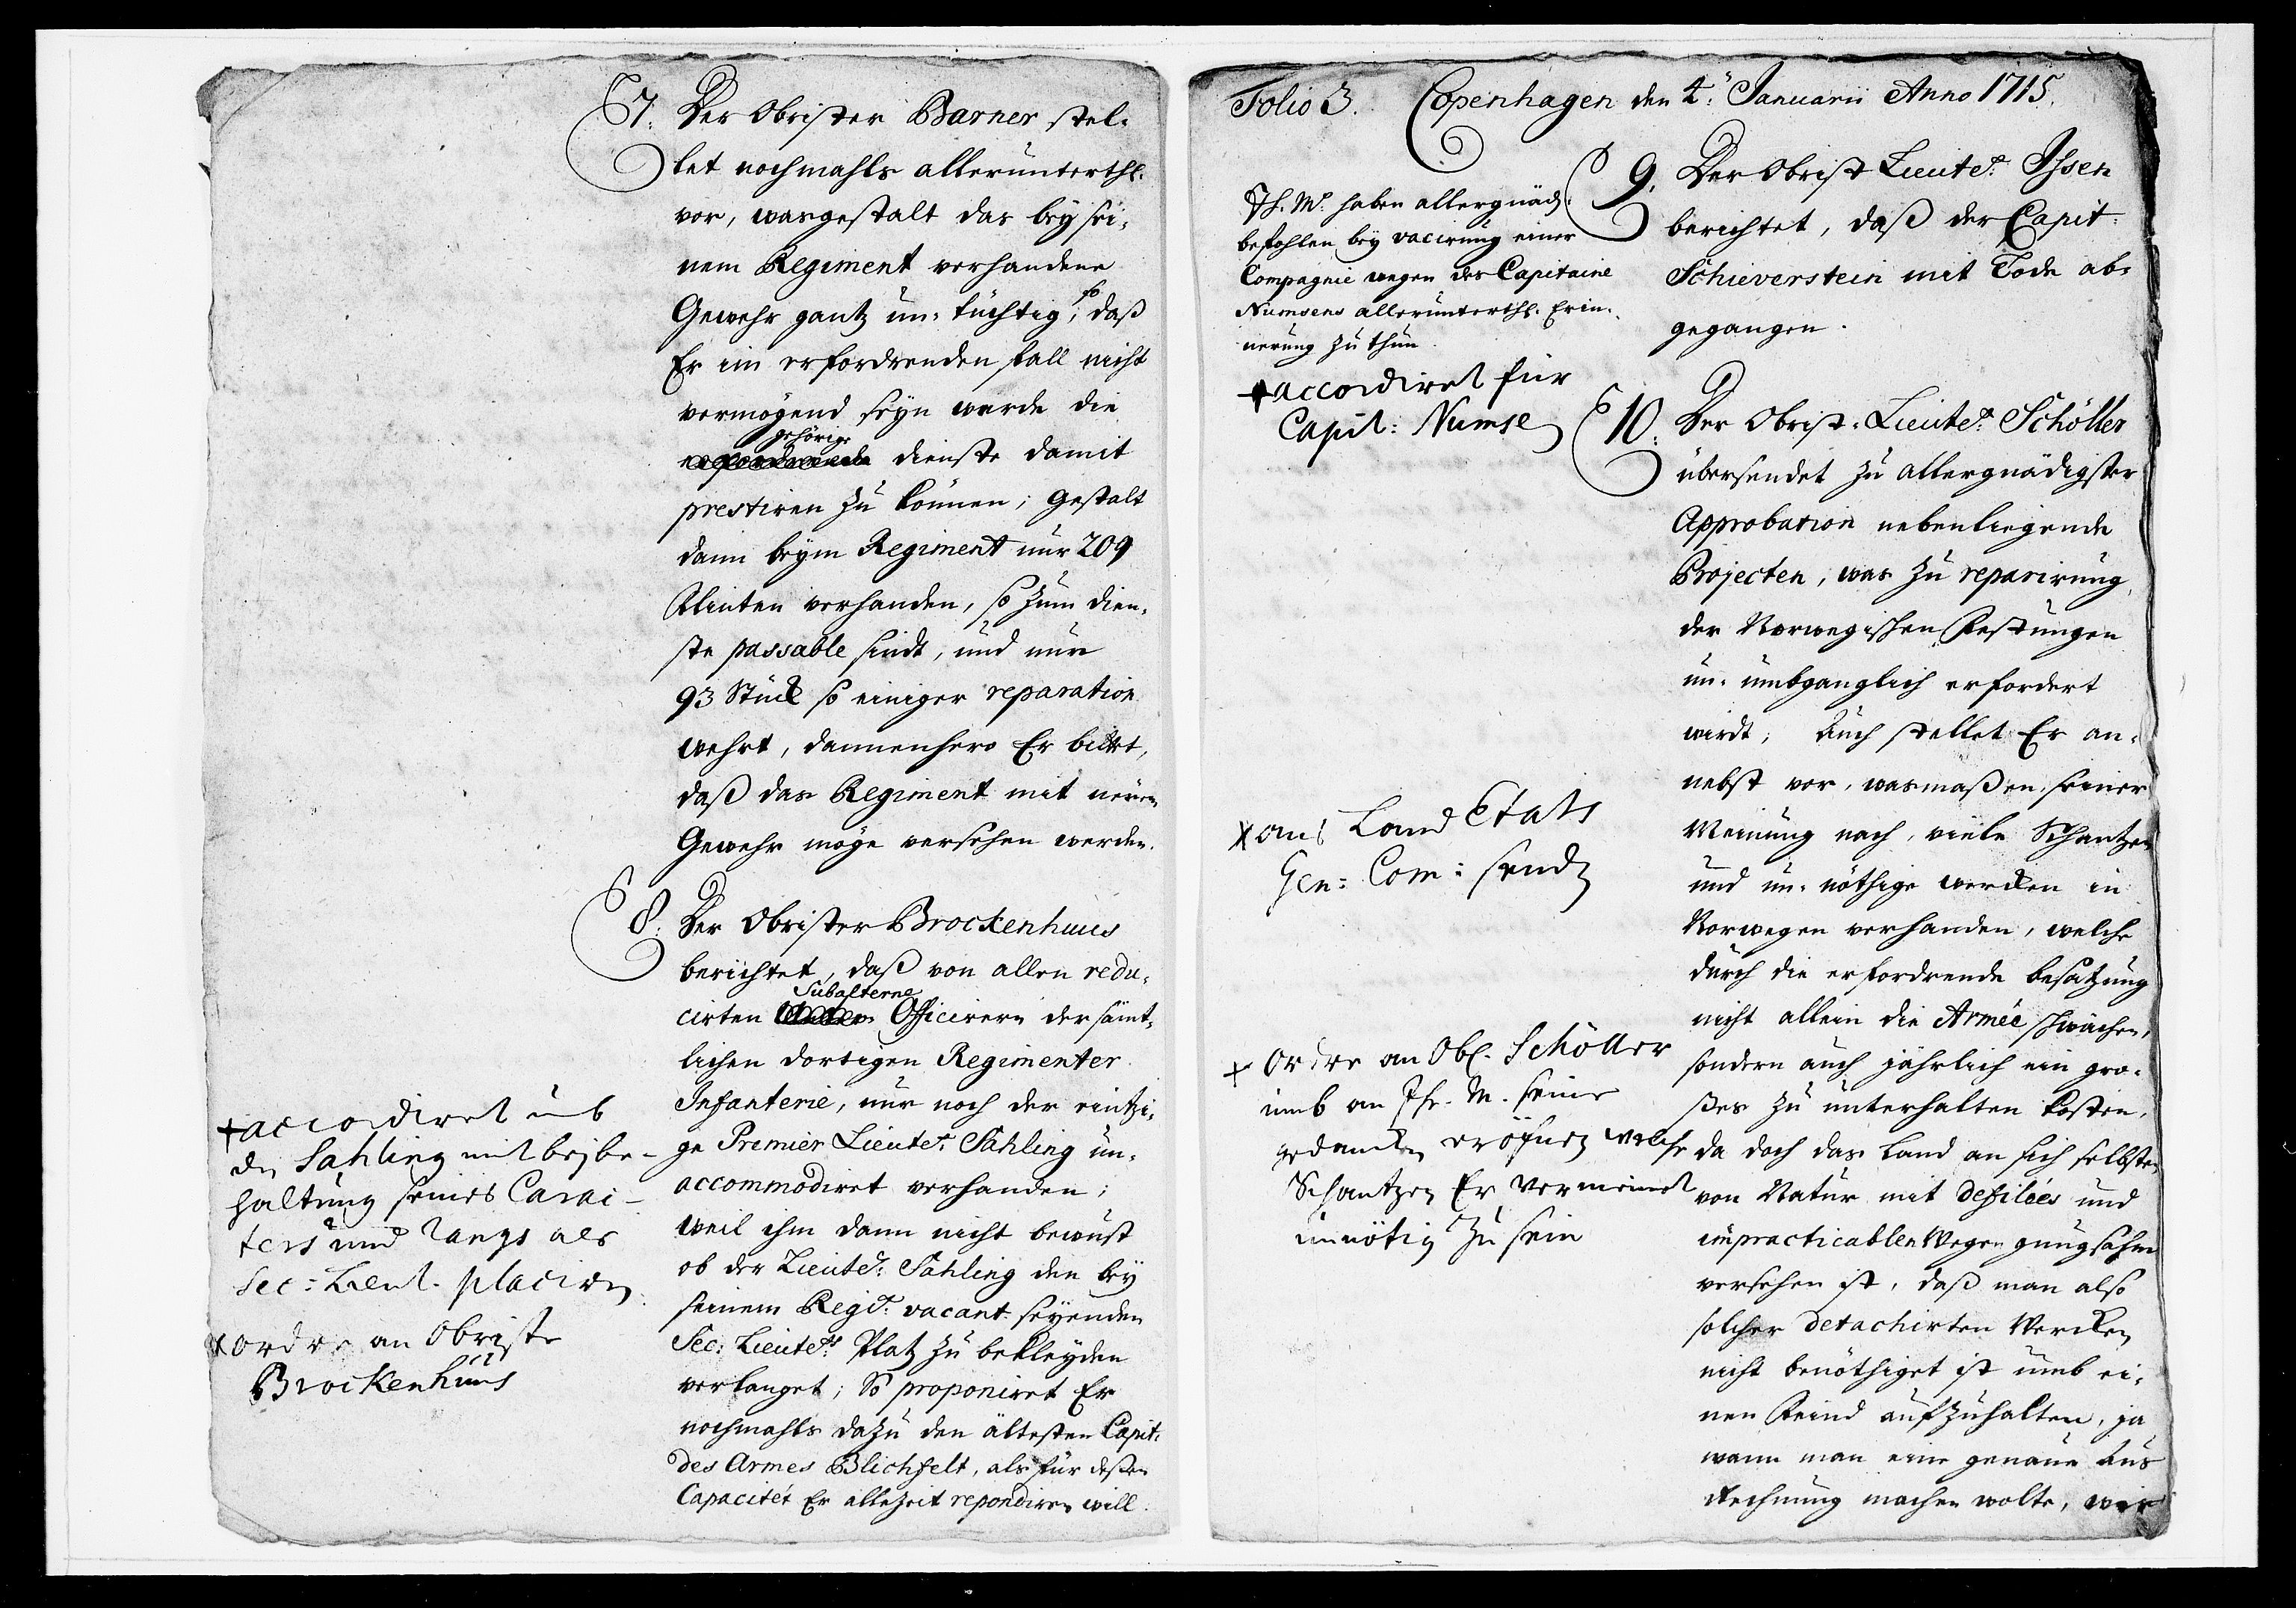 7. Der Obrister Barner stel-
let nochmahls allerunterth:
vor, wasgestalt das bey sei-
nem Regiment verhandene
Gewehr gantz un-tüchtig, so daß
Er im erfordrenden fall nicht
vermögend seyn werde die
gehörige
dienste damit
prestiren zu können; Gestalt
dann beym Regiment nur 209
Flinten verhanden, so zum dien-
ste passable sindt, und nur
93 Stück so einiger reparation
wehrt, dannenhero Er bittet,
daß das Regiment mit neuen
Gewehr möge versehen werden.
8. Der Obrister Brockenhuus
berichtet, daß von allen redu-
Subalterne
cirten Officirern der sämt-
lichen dortigen Regimenter
Infanterie, nur noch der eintzi-
ge Premier Lieutet: Sahling un-
accommodiret verhanden;
weil ihm dann nicht bewust
ob der Lieutet: Sahling den bey
seinem Regit: vacant seyenden
Sec: Lieutets Platz zu bekleyden
verlanget; So proponiret Er
nochmahls dazu den ältesten Capit:
des Armes Blichfelt, als für deßen
Capacitét Er allezeit repondiren will.
+ accordiret umb
den Sahling mit beybe-
haltung seines Carac-
ters und Rangs als
Sec: Lieut. placiren
x ordre an Obriste
Brockenhuus
Folio 3. Copenhagen den 4: Januarii Anno 1715.
Ih. Mt. haben allergnäd:
befohlen bey vacirung einer
Compagnie wegen des Capitaine
Numsens allerunterth: Erin-
nerung zu thun.
+ accordiret für
Capit: Numse
x ans Land Etats
Gen: Com: send
x Ordre an Obl. Schöller
umb an Ihr. M. seine
gedancken eröfnen welche
Schantzen Er vermeinet
unnötig zu sein
9. Der Obrist Lieutet: Issen
berichtet, daß der Capit:
Schieverstein mit Tode ab-
gegangen.
10. Der Obrist-Lieutet: Schöller
übersendet zu allergnädigster
Approbation nebenliegende
Projecten, was zu reparirung
der Norwegischen Festungen
un-umbganglich erfordert
wirdt; Auch stellet Er an-
nebst vor, wasmaßen seiner
Meinung nach, viele Schantzen
und un-nöthige wercken in
Norwegen verhanden, welche
durch die erfordrende besatzung
nicht allein die Armée schwächen,
sondern auch jährlich ein gro-
ßes zu unterhalten kosten,
da doch das Land an sich selbsten
von Natur mit defilées und
impracticablen Wegen gnugsahm
versehen ist, daß man also
solcher detachirten Wercken
nicht benöthiget ist umb ei-
nen Feind aufzuhalten, ja
wann man eine genaue Aus
Rechnung machen wolte, wie